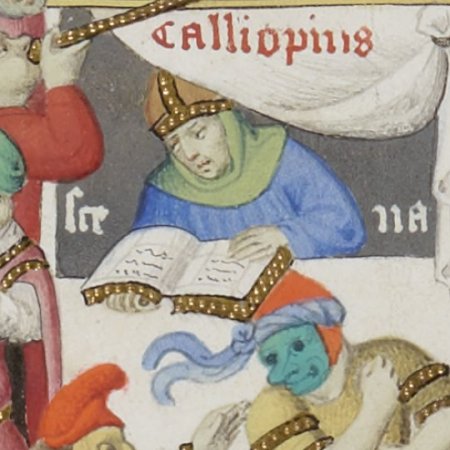 Calliopius
sce na